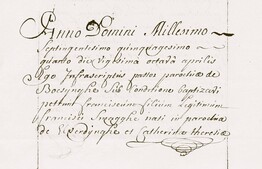 Anno Domini Millesimo
Septingentesimo quinquagesimo
quarto die vigesima octava aprilis
Ego Infrascriptus pastor parochiæ de
Boesinghe sub Conditione baptizavi
franciscum filium Legitimum
francisci nati in parochia
de et Catharinæ theresiæ